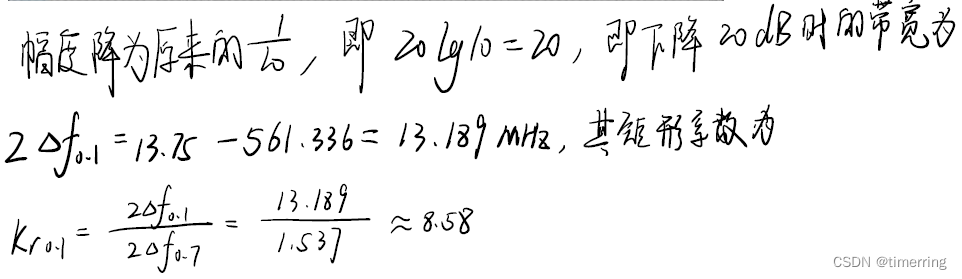 幅度降为原来的 1/10, 即 20lg10=20, 即下降20dB时的带宽为
2Δf0.1 = 13.75 - 561.336 = 13.189 MHz, 其矩形系数为
Kr0.1 = 2Δf0.1 / 2Δf0.7 = 13.189 / 1.537 ≈ 8.58
CSDN @timerring